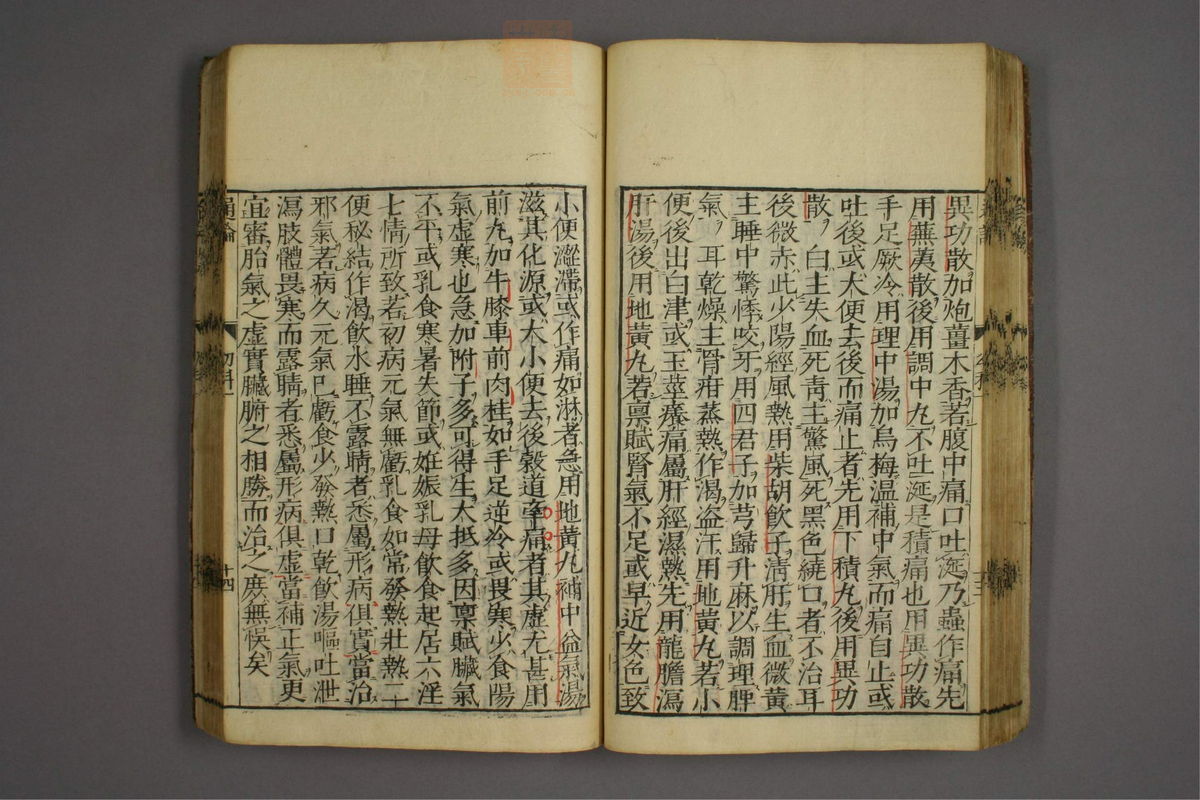 異功散加炮薑木香若腹中痛口吐涎乃蟲作痛先
用蕪荑散後用調中丸不吐涎是積痛也用異功散
手足厥冷用理中湯加烏梅溫補中氣而痛自止或
吐後或大便去後而痛止者先用下積丸後用異功
散白主失血死靑主驚風死黑色繞口者不治耳
後微赤此少陽經風熱用柴胡飲子淸肝生血微黃
主睡中驚悸咬牙用四君子加芎歸升麻以調理脾
氣耳乾燥主腎疳蒸熱作渴盗汗用地黃丸若小
便後出白津或玉莖癢痛屬肝經濕熱先用龍膽瀉
肝湯後用地黃丸若禀賦腎氣不足或早近女色致
小便澀滯或作痛如淋者急用地黃丸補中益氣湯
滋其化源或大小便去後榖道牽痛者其虛尤甚用
前丸加牛膝車前肉桂如手足逆冷或畏寒少食陽
氣虛寒也急加附子多可得生大抵多因禀賦臟氣
不平或乳食寒暑失節或姙娠乳母飲食起居六淫
七情所致若初病元氣無虧乳食如常發熱壯熱二
便秘結作渴飲水睡不露睛者悉屬形病俱實當治
邪氣若病久元氣已虧食少發熱口乾飲湯嘔吐泄
瀉肢體畏寒而露睛者悉屬形病俱虛當補正氣更
宜審胎氣之虛實臟腑之相勝而治之庶無悞矣
十四